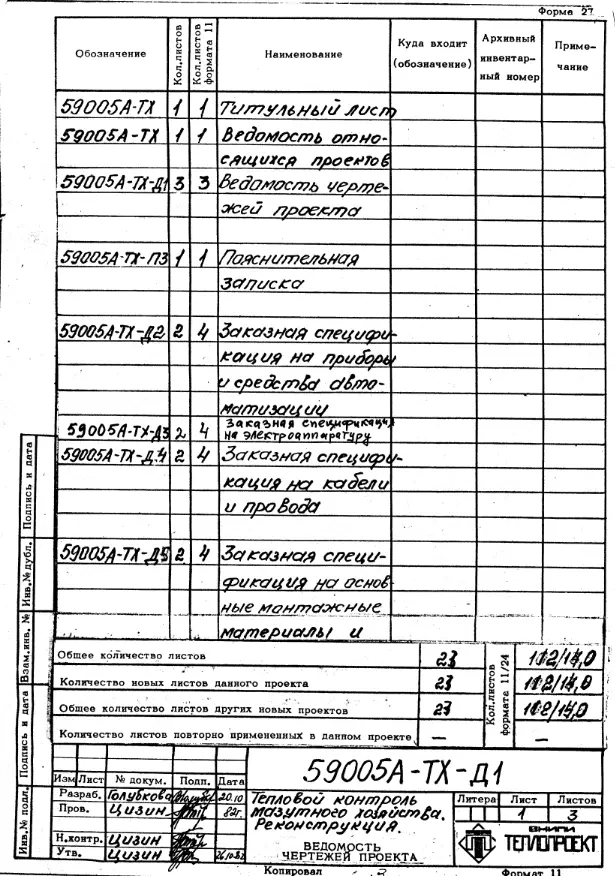 Форма 27
Обозначение Кол.листов Кол.листов формата 11 Наименование Куда входит (обозначение) Архивный инвентарный номер Примечание
59005А-ТХ 1 1 Титульный лист
59005А-ТХ 1 1 Ведомость отно-
сящихся проектов
59005А-ТХ-Д1 3 3 Ведомость черте-
жей проекта
59005А-ТХ-ПЗ 1 1 Пояснительная
записка
59005А-ТХ-Д2 2 4 Заказная специфи-
кация на приборы
и средства авто-
матизации
59005А-ТХ-Д3 2 4 Заказная спецификация
на электроаппаратуру
59005А-ТХ-Д4 2 4 Заказная специфи-
кация на кабели
и провода
59005А-ТХ-Д5 2 4 Заказная специ-
фикация на основ-
ные монтажные
материалы и
Общее количество листов 23
Количество новых листов данного проекта 23
Общее количество листов других новых проектов 23
Количество листов повторно примененных в данном проекте —  —
Кол.листов формата 11/24
Инв.№ подл. Подпись и дата Взам.инв. № Инв.№ дубл. Подпись и дата
59005А-ТХ-Д1
Изм Лист № докум. Подп. Дата
Разраб. Голубкова 20.10
Пров. Цизин 82г.
Н.контр. Цизин
Утв. Цизин 26.10.82
Тепловой контроль
мазутного хозяйства.
Реконструкция.
ВЕДОМОСТЬ
ЧЕРТЕЖЕЙ ПРОЕКТА
Литера Лист Листов
1 3
ВНИПИ
ТЕПЛОПРОЕКТ
Копировал Формат 11